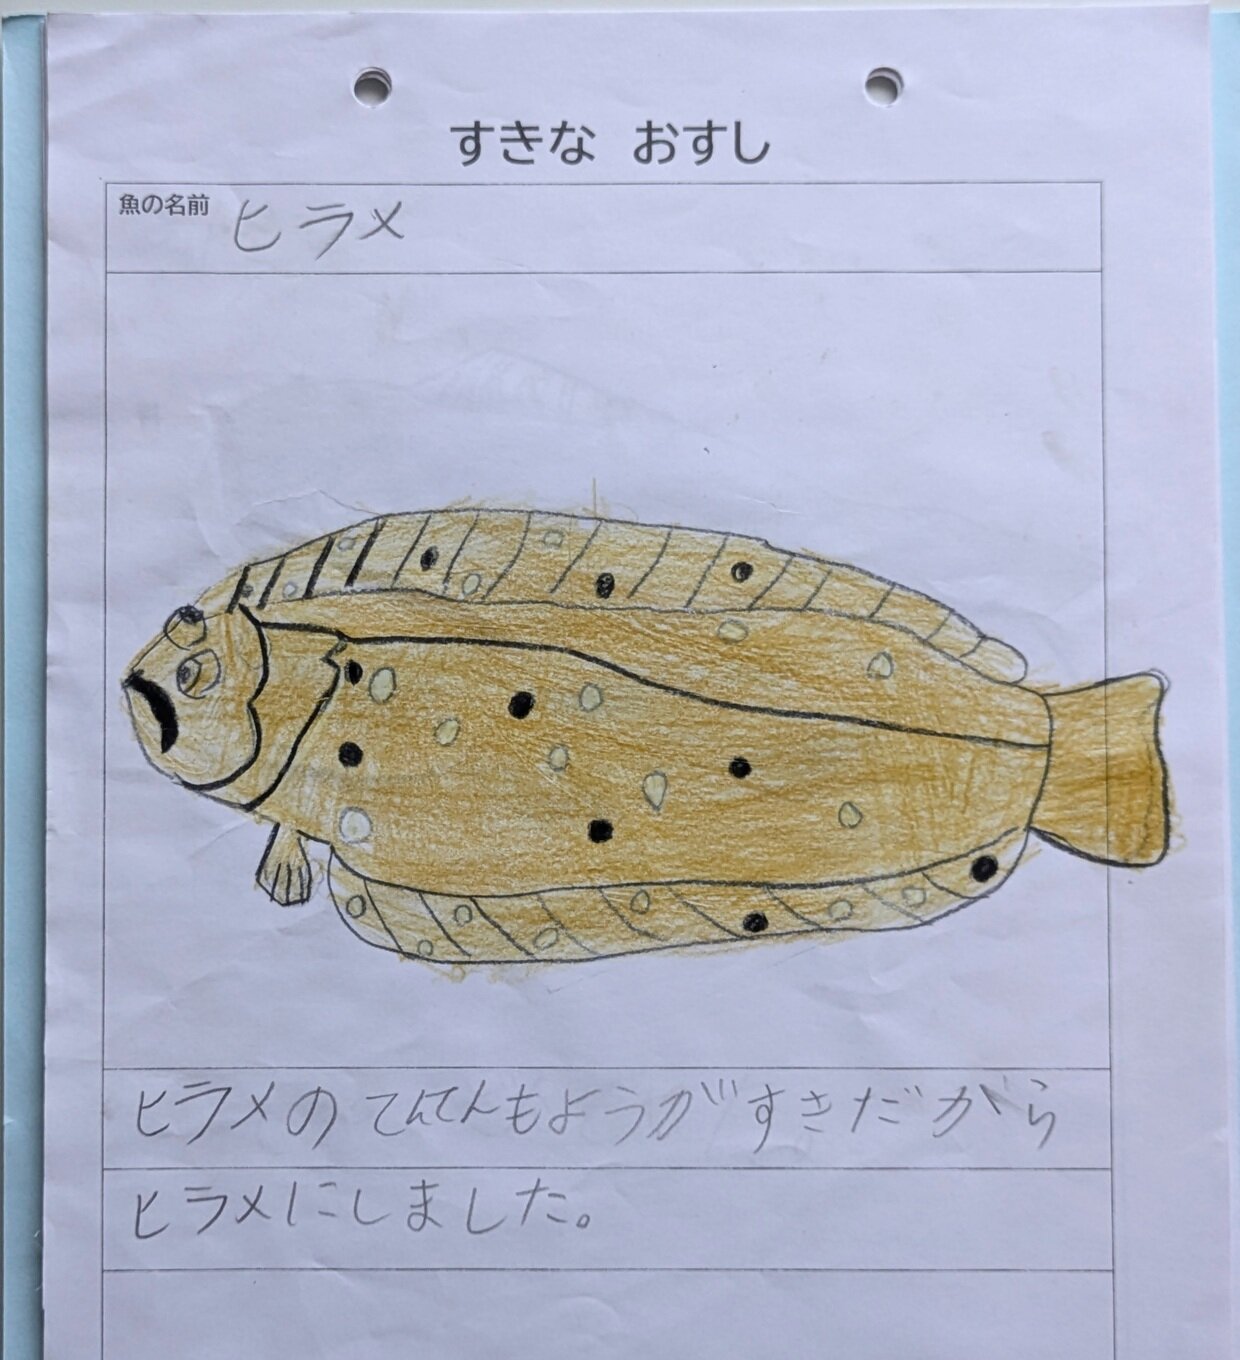 すきな おすし
魚の名前 ヒラメ
ヒラメのてんてんもようがすきだから
ヒラメにしました。